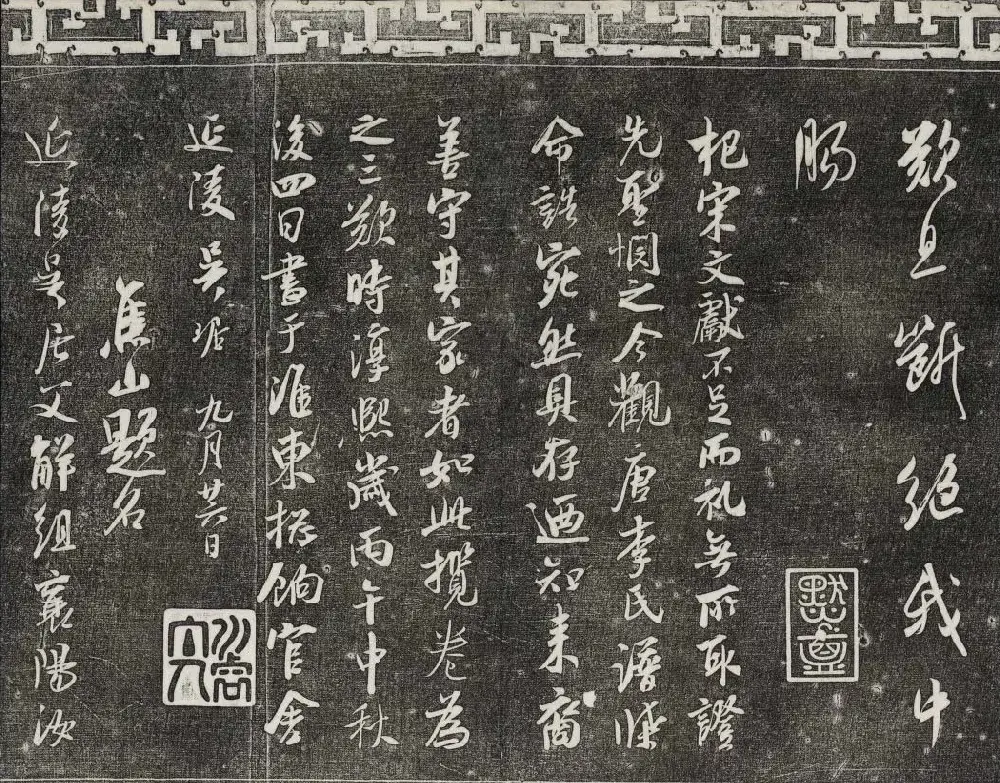 歎息斷絕我中
腸
杞宋文獻不足而礼無所取證
先聖憫之今觀唐李氏譜牒
命誥宛然具存迺知来裔
善守其家者如此攬卷為
之三歎時淳熙歲丙午中秋
後四日書于淮東揔餉官舍
延陵吴琚九月廿六日
焦山題名
延陵吴居父解組襄陽